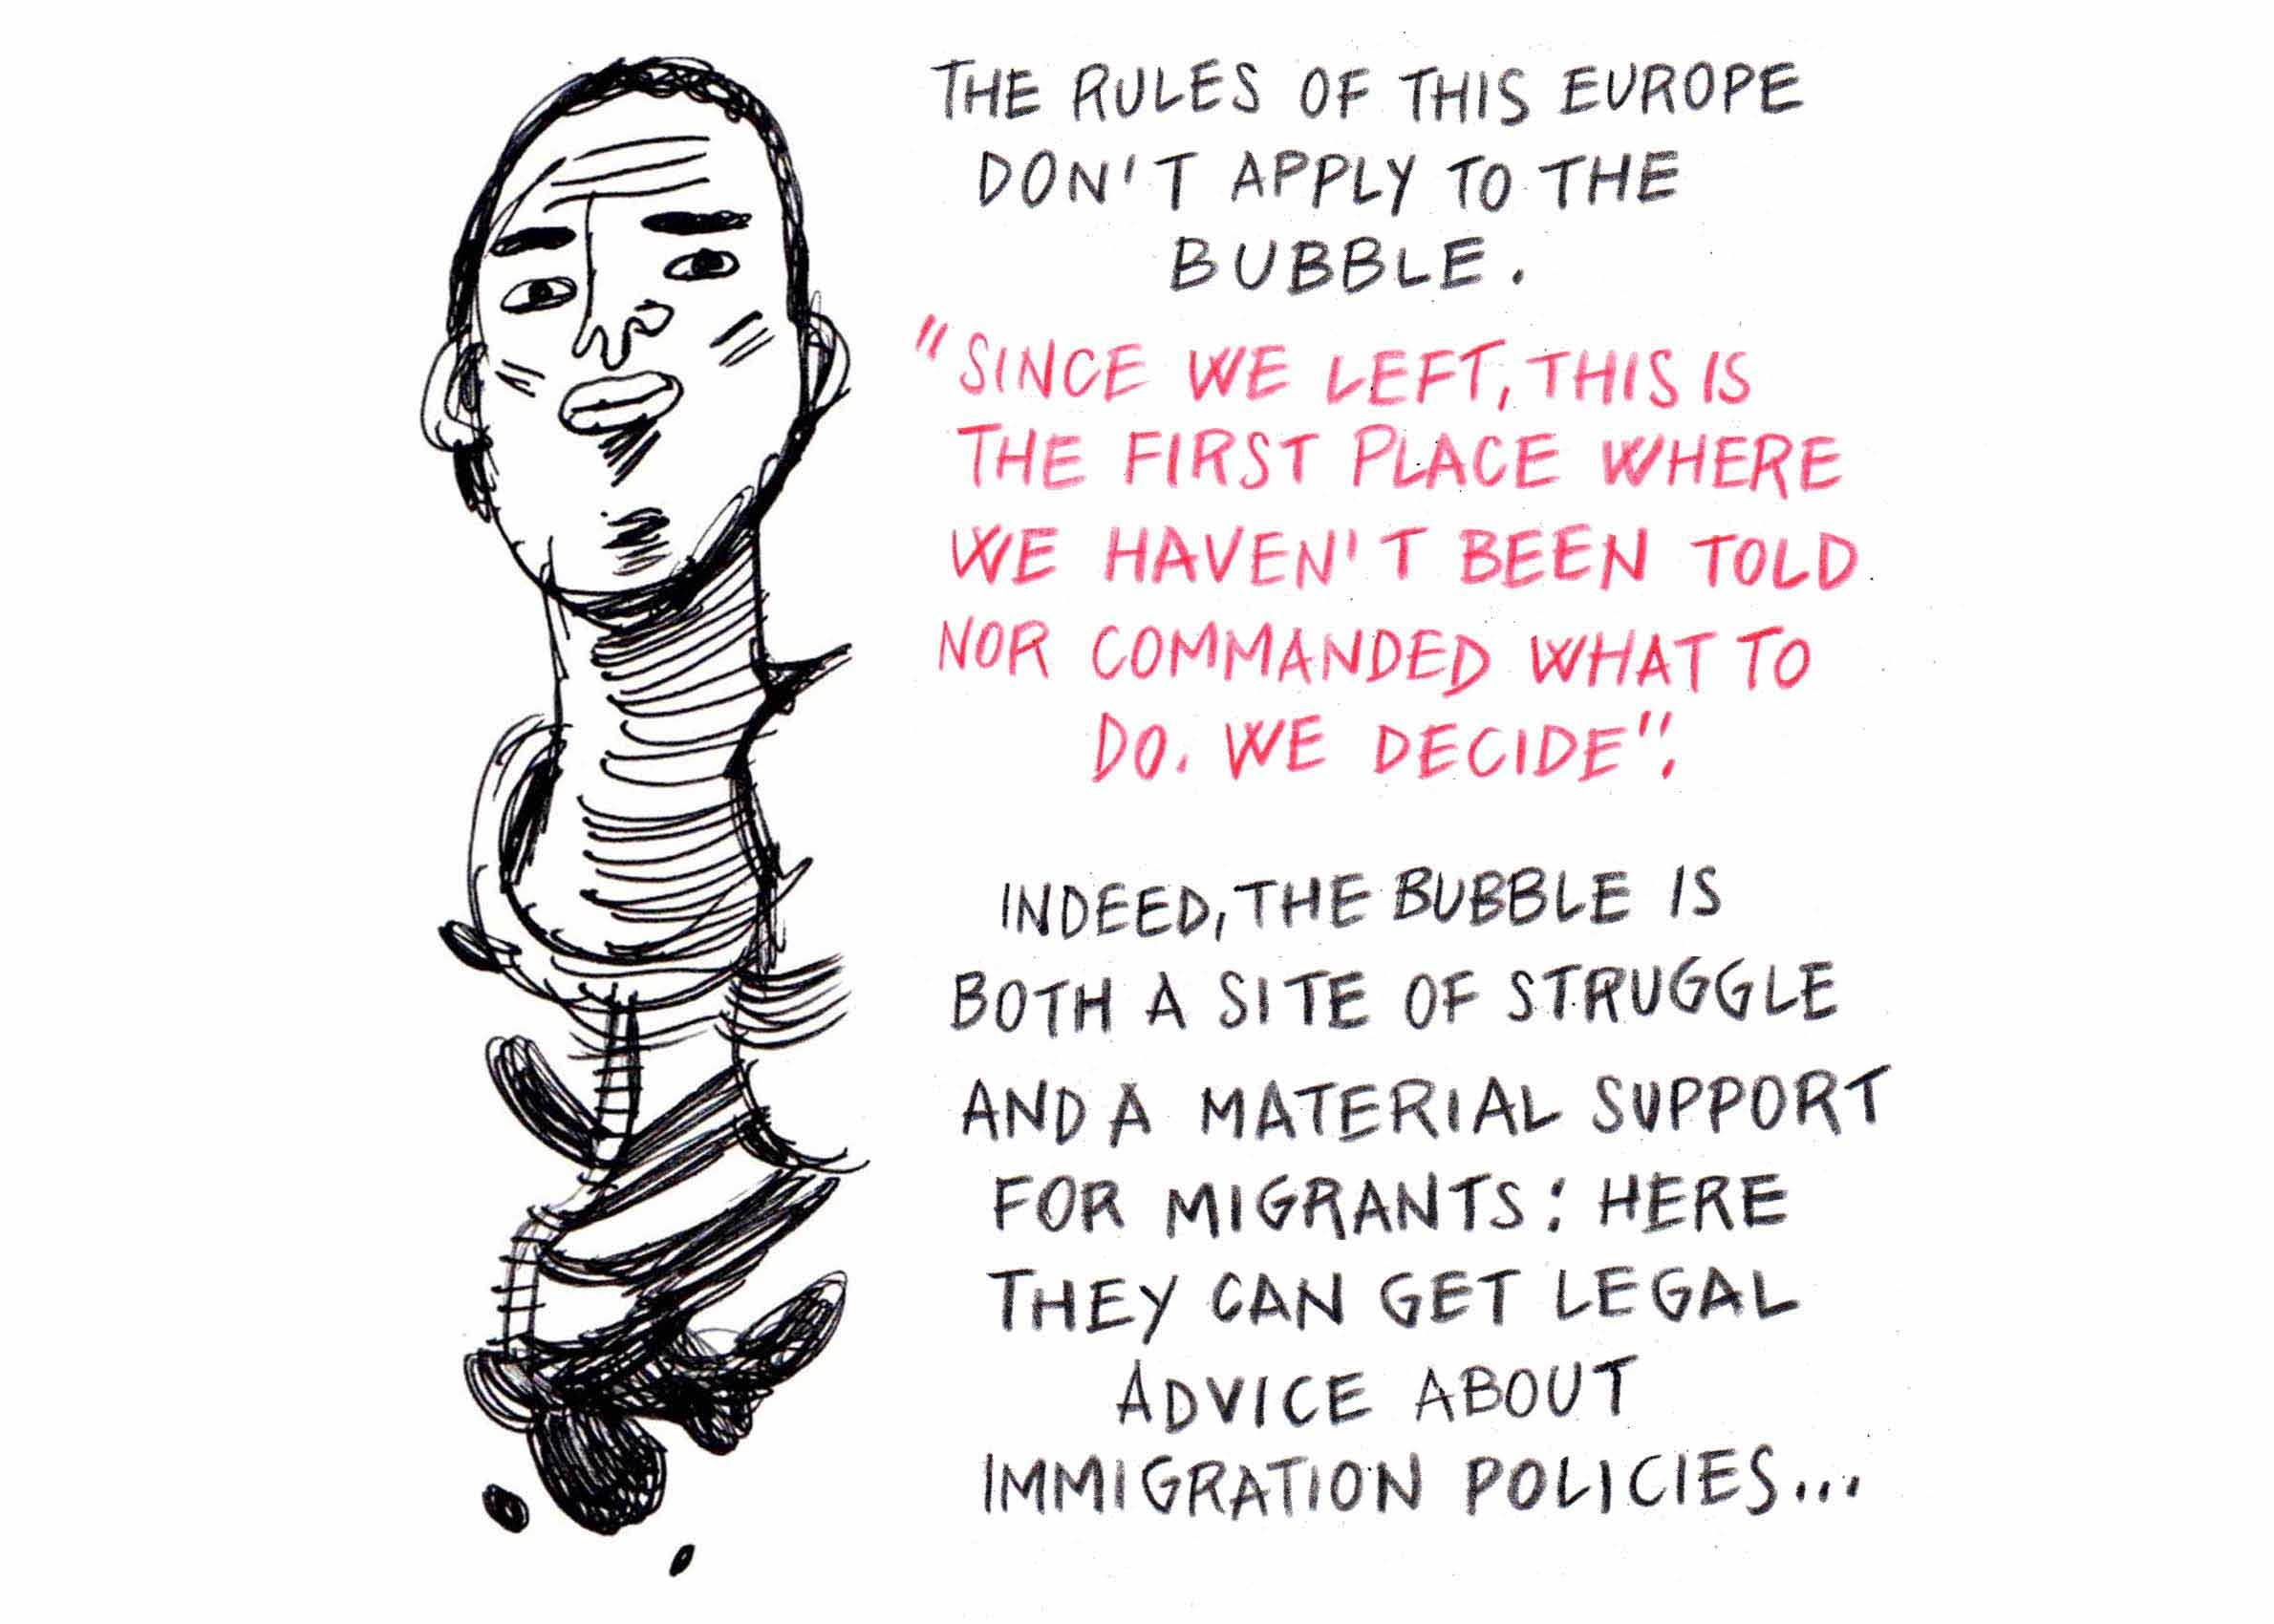 THE RULES OF THIS EUROPE
DON'T APPLY TO THE
BUBBLE.
"SINCE WE LEFT, THIS IS
THE FIRST PLACE WHERE
WE HAVEN'T BEEN TOLD
NOR COMMANDED WHAT TO
DO. WE DECIDE".
INDEED, THE BUBBLE IS
BOTH A SITE OF STRUGGLE
AND A MATERIAL SUPPORT
FOR MIGRANTS: HERE
THEY CAN GET LEGAL
ADVICE ABOUT
IMMIGRATION POLICIES...